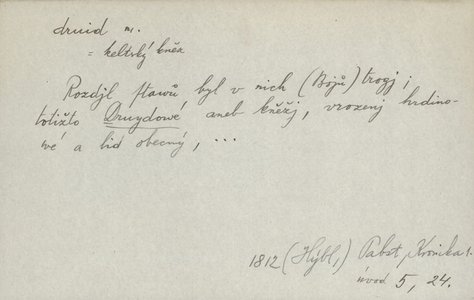 druid m.
= keltský kněz
Rozdjl stawů byl v nich (Bojů) trogj;
totižto Druydowé aneb kněžj, vrozenj hrdino-
wé a lid obecný, ...
1812 (Hýbl,) Pabst, Kronika 1.
úvod 5, 24.